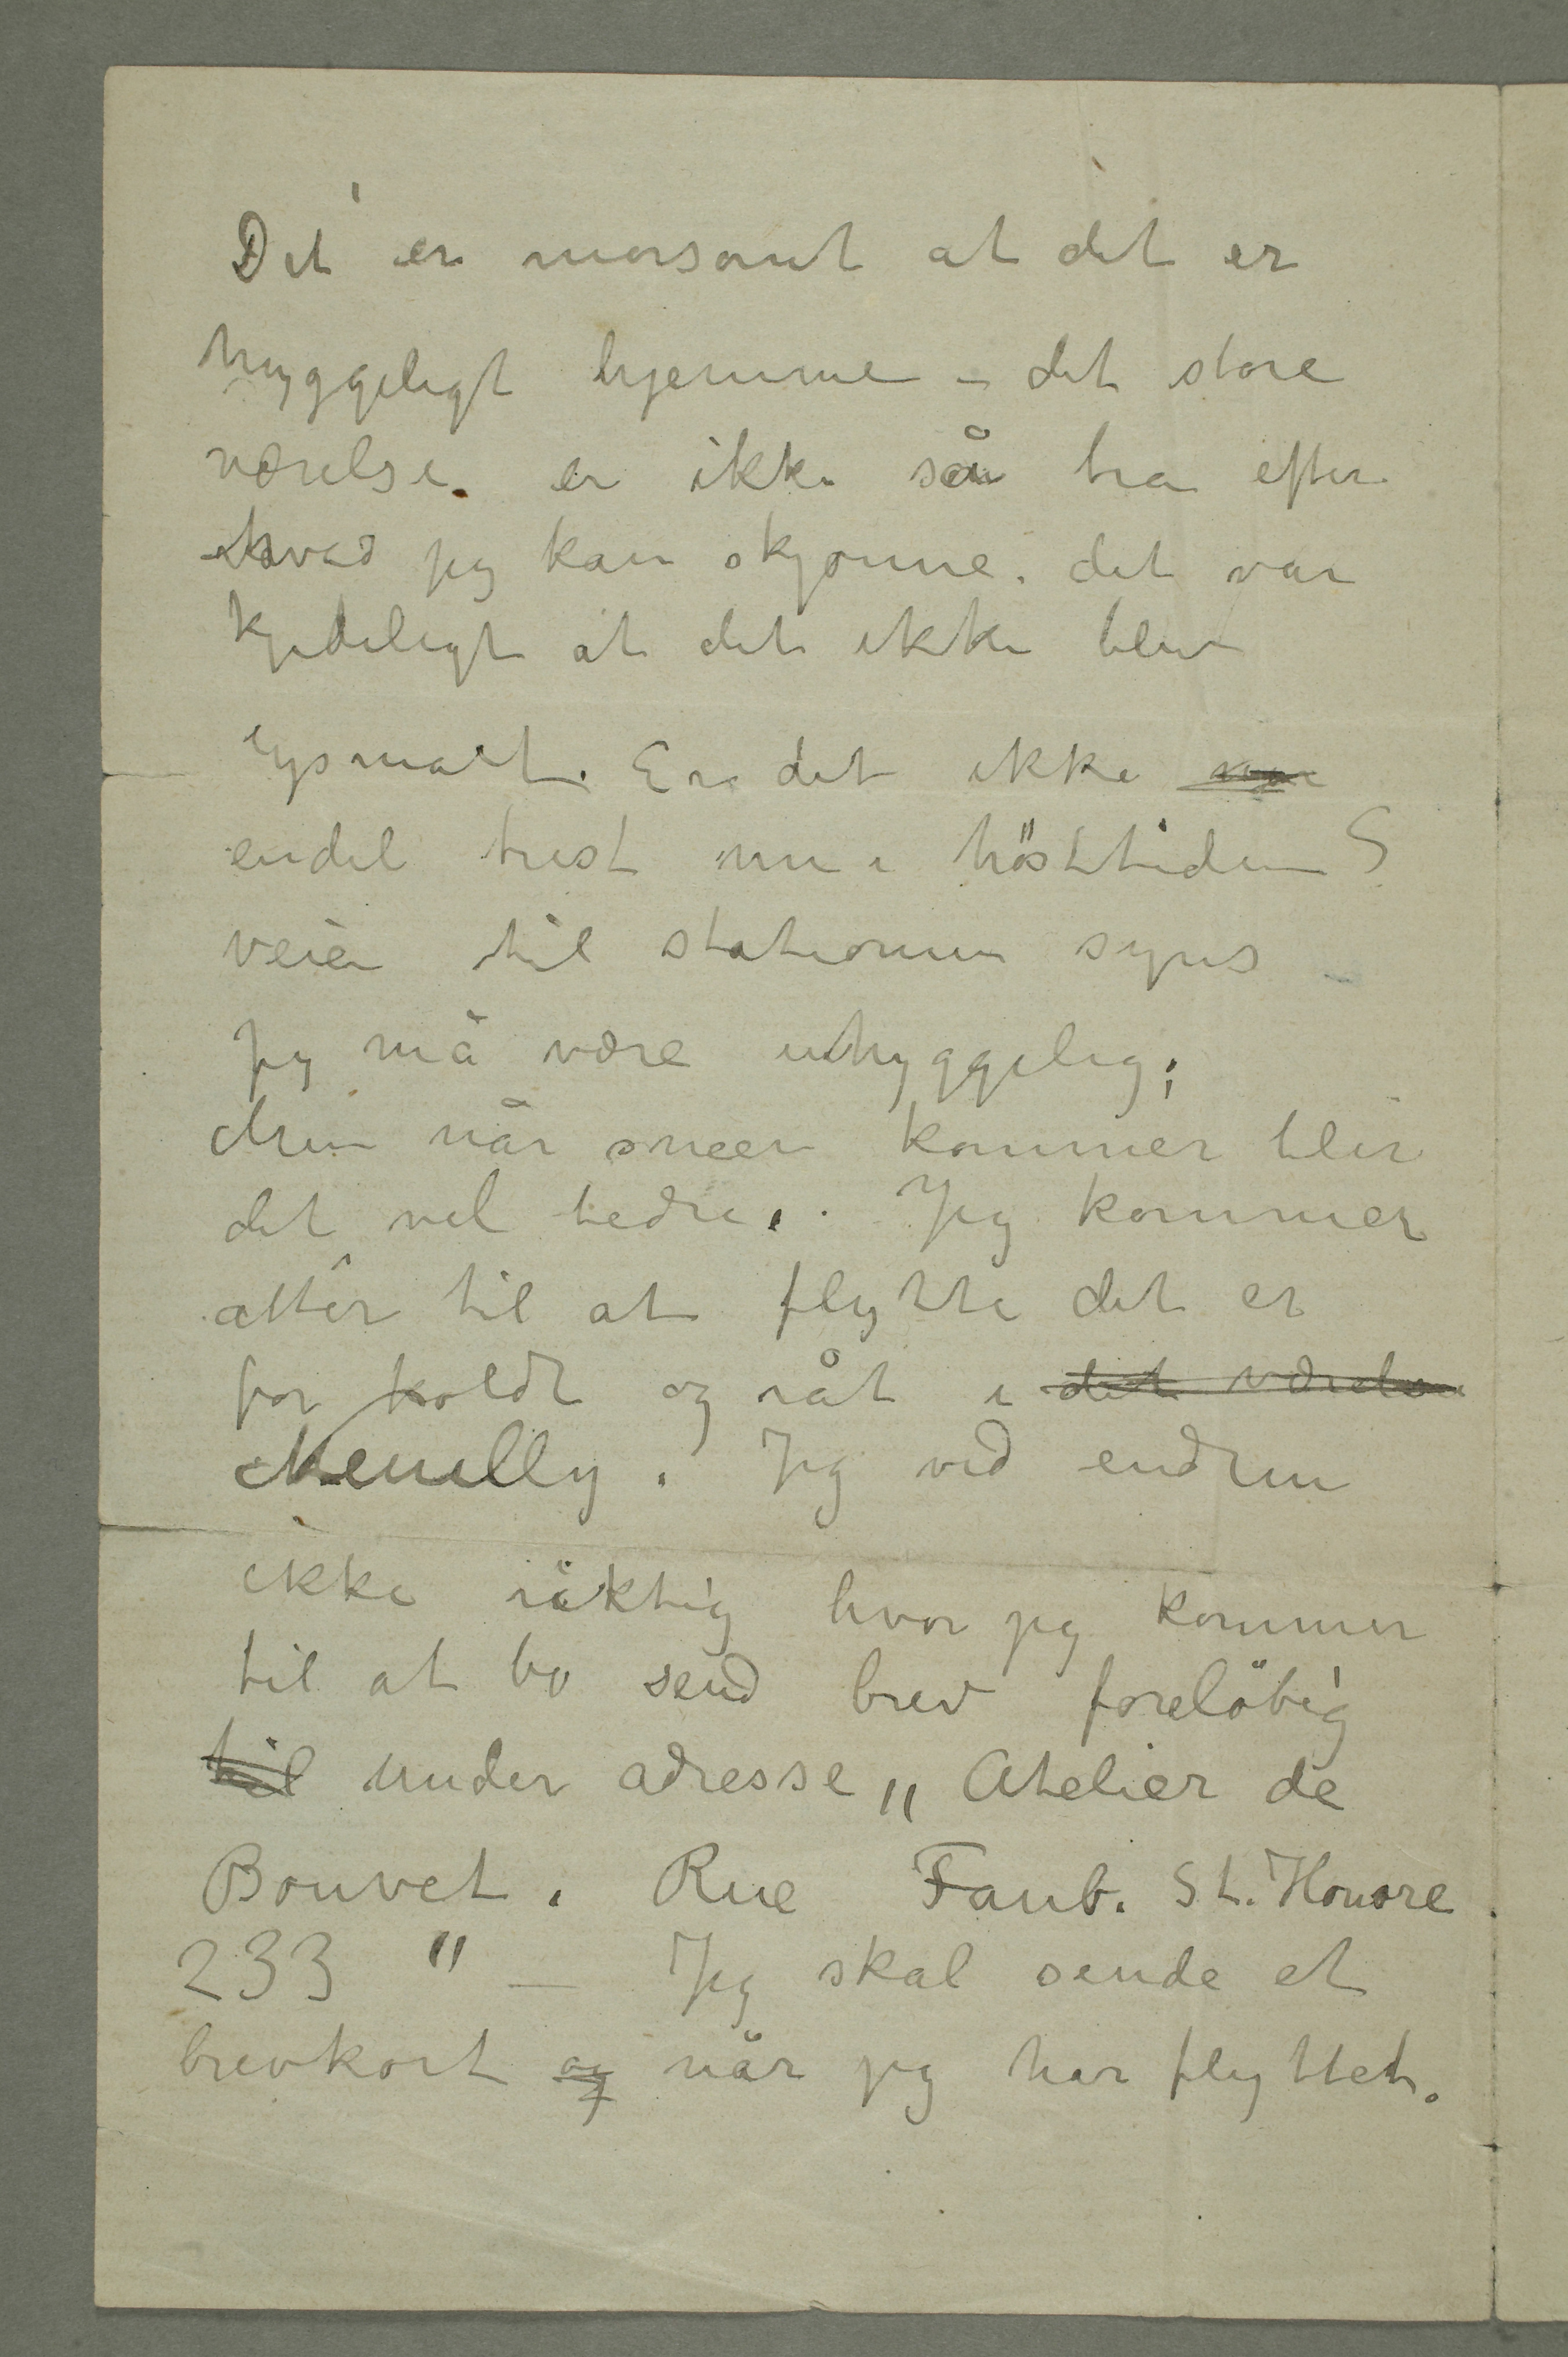 Det er morsomt at det er
hyggeligt hjemme – det store
værelse. er ikke så bra efter
hvad jeg kan skjønne. det var
kjedeligt at det ikke blev
lysmalt. Er det ikke
endel trist nu i hösttiden?
veien til stationen synes
jeg må være uhyggelig;
Men når sneen kommer blir
det vel bedre. Jeg kommer
atter til at flytte det er
for koldt og råt i det værelse
Neuilly. Jeg ved endnu
ikke riktig hvor jeg kommer
til at bo send brev foreløbig
til under adresse „ Atelier de
Bouvet. Rue Faub. St. Honore
233 " — Jeg skal sende et
brevkort og når jeg har flyttet.